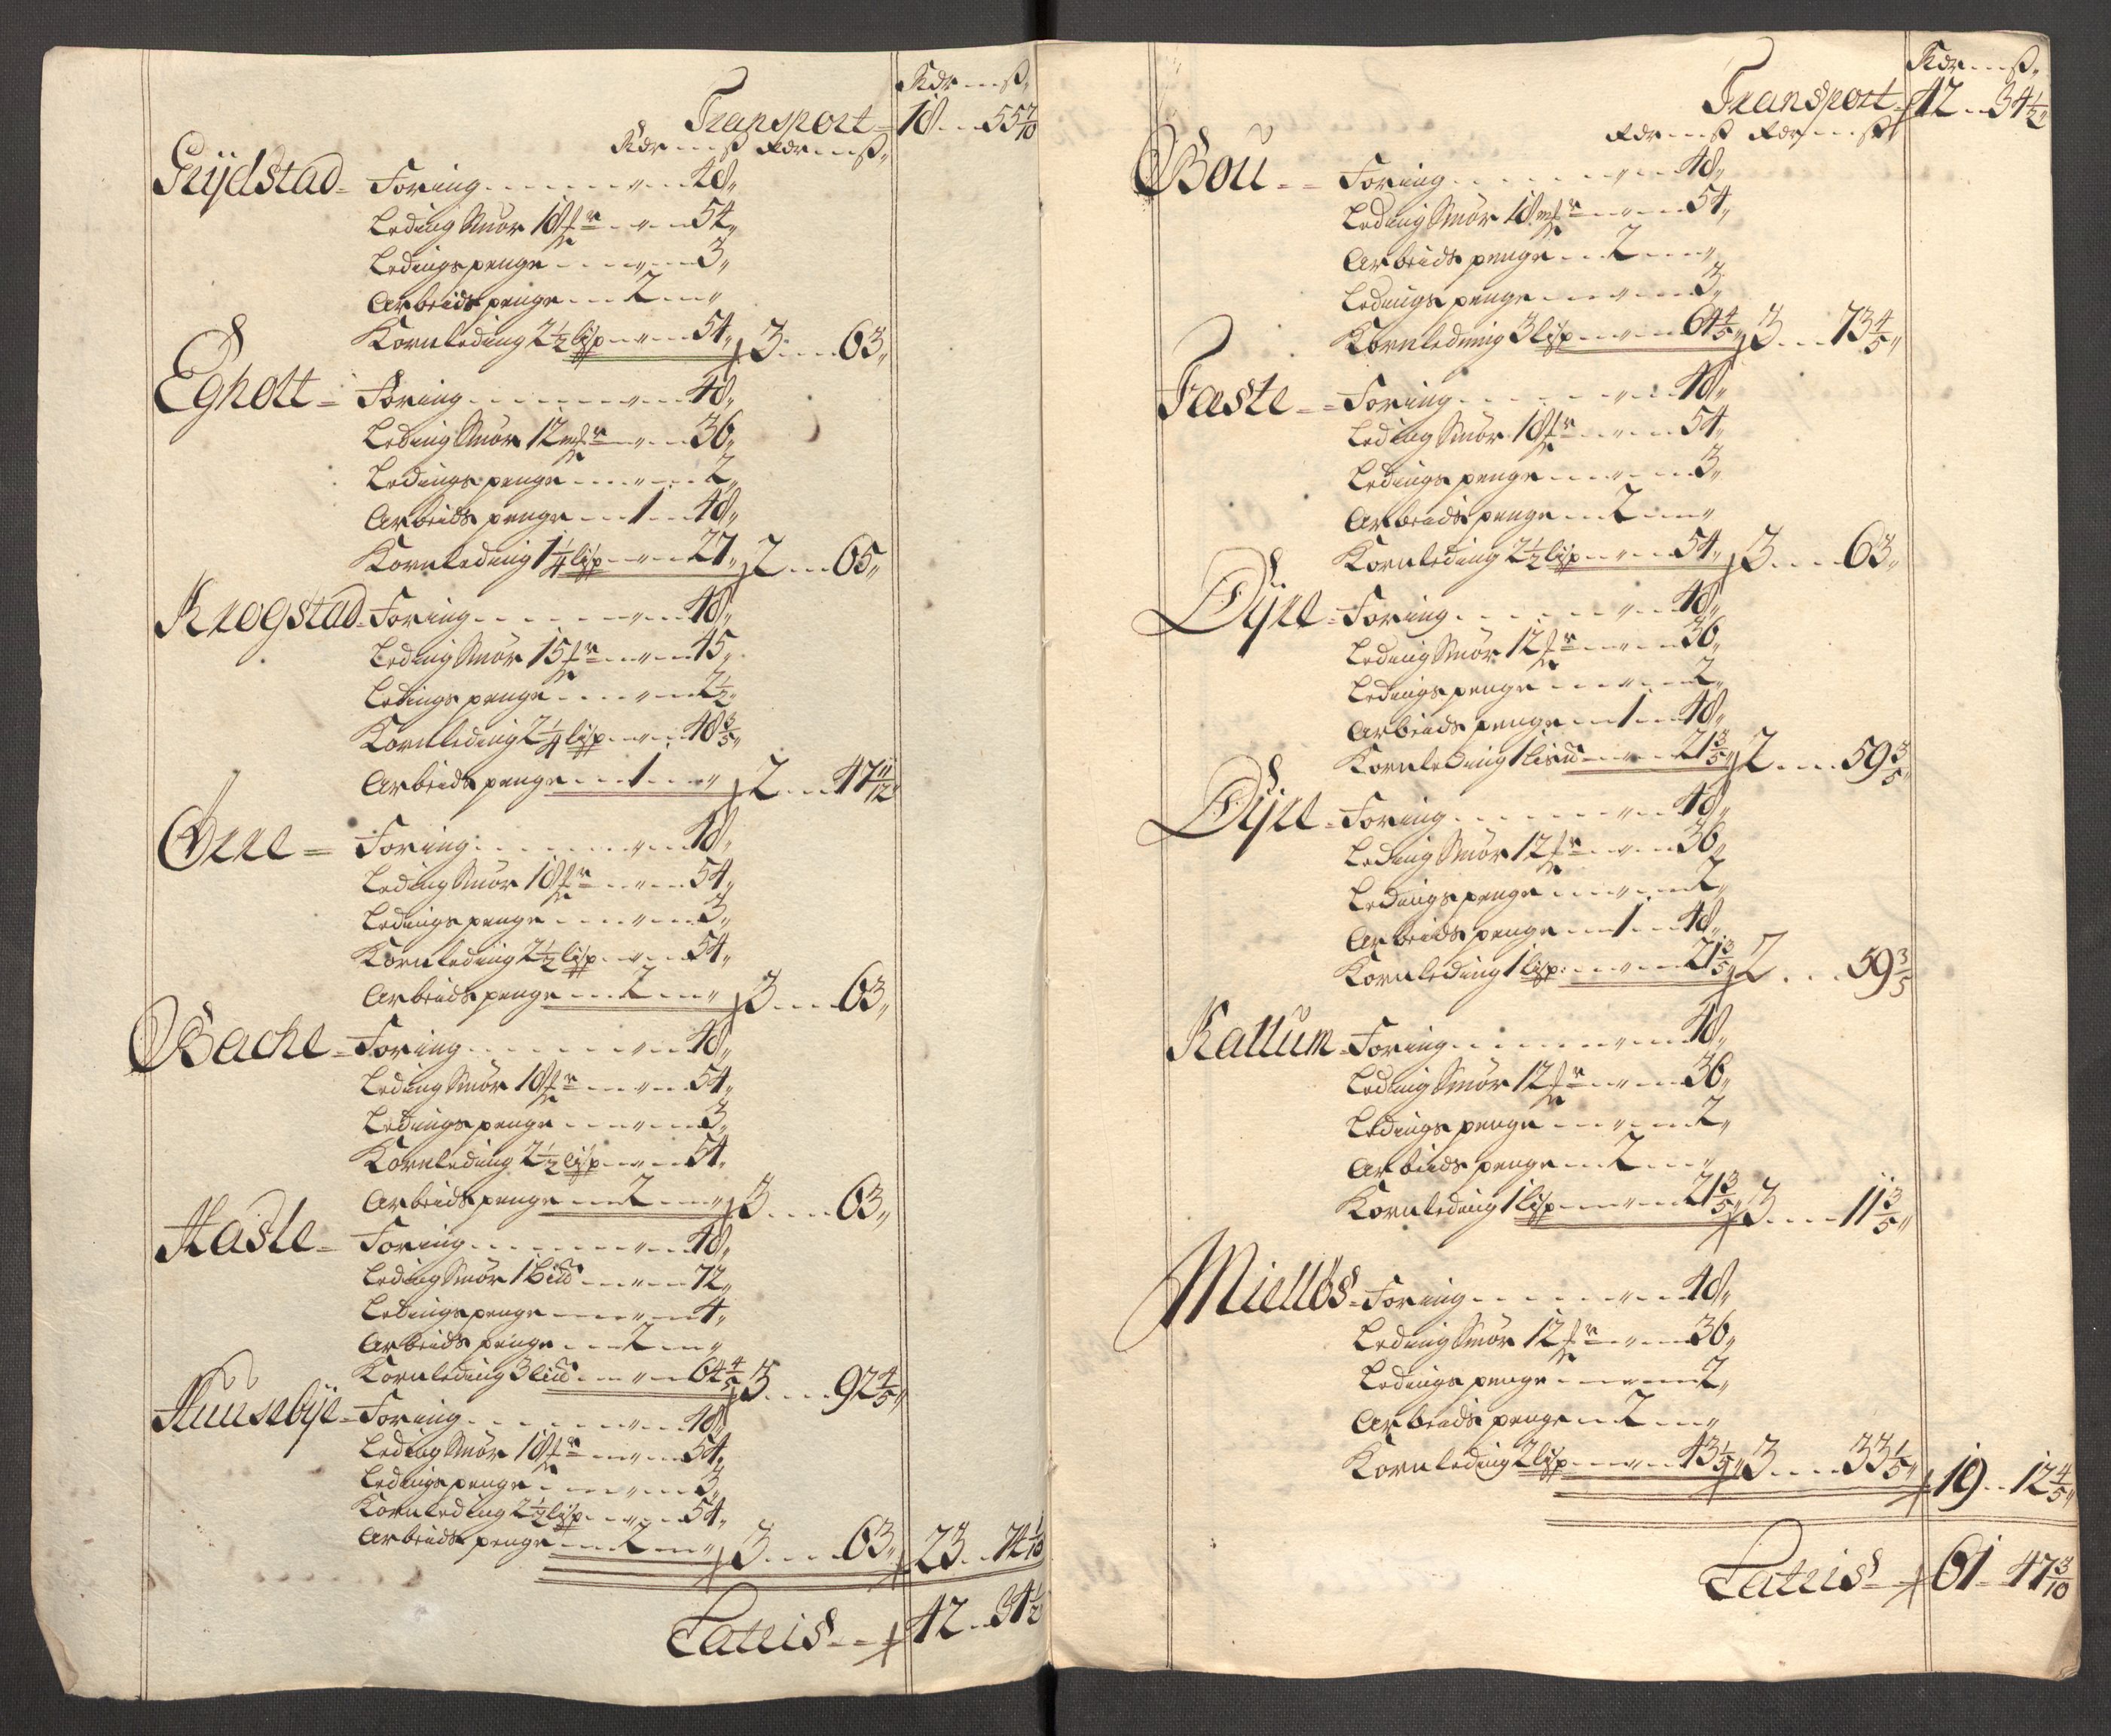 Rdr ß
Transport 18 55 7/10
Rdr ß Rdr ß
Grijdstad Foring 48
Leding Smör 18 mkr 54
Ledings penge 3
Arbeids penge 2
Kornleding 2½ lisp 54 3 63
Egholt Foring 48
Leding Smör 12 mkr 36
Ledings penge 2
Arbeids penge 1 48
Kornleding 1¼ lisp 27 2 65
Krogstad Foring 48
Leding Smör 15 mkr 45
Ledings penge 2½
Kornleding 2¼ lisp 48 3/5
Arbeids penge 1 2 47 11/12
Örre Foring 48
Leding Smör 18 mkr 54
Ledings penge 3
Kornleding 2½ lisp 54
Arbeids penge 2 3 63
Bache Foring 48
Leding Smör 18 mkr 54
Ledings penge 3
Kornleding 2½ lisp 54
Arbeids penge 2 3 63
Hasle Foring 48
Leding Smör 1 Lisd 72
Ledings penge 4
Arbeids penge 2
Kornleding 3 lisd 64 4/5 3 92 4/5
Huusebije Foring 48
Leding Smör 18 mkr 54
Ledings penge 3
Kornleding 2½ lisp 54
Arbeids penge 2 3 63 23 74 1/10
Lateris 42 34½
Rdr ß
Transport 42 34½
Rdr ß Rdr ß
Bou Foring 48
Leding Smör 18 mkr 54
Arbeids penge 2
Ledings penge 3
Kornleding 3 lisp 64 4/5 3 73 4/5
Faste Foring 48
Leding Smör 18 mkr 54
Ledings penge 3
Arbeids penge 2
Kornleding 2½ lisp 54 3 63
Dijre Foring 48
Leding Smör 12 mkr 36
Ledings penge 2
Arbeids penge 1 48
Kornleding 1 lisd 21 3/5 2 59 3/5
Dijre Foring 48
Leding Smör 12 mkr 36
Ledings penge 2
Arbeids penge 1 48
Kornleding 1 lisp 21 3/5 2 59 3/5
Kallum Foring 48
Leding Smör 12 mkr 36
Ledings penge 2
Arbeids penge 2
Kornleding 1 lisp 21 3/5 3 11 3/5
Miellös Foring 48
Leding Smör 12 mkr 36
Ledings penge 2
Arbeids penge 2
Kornleding 2 lisp 43 1/5 3 33 1/5 19 12 4/5
Lateris 61 47 3/10